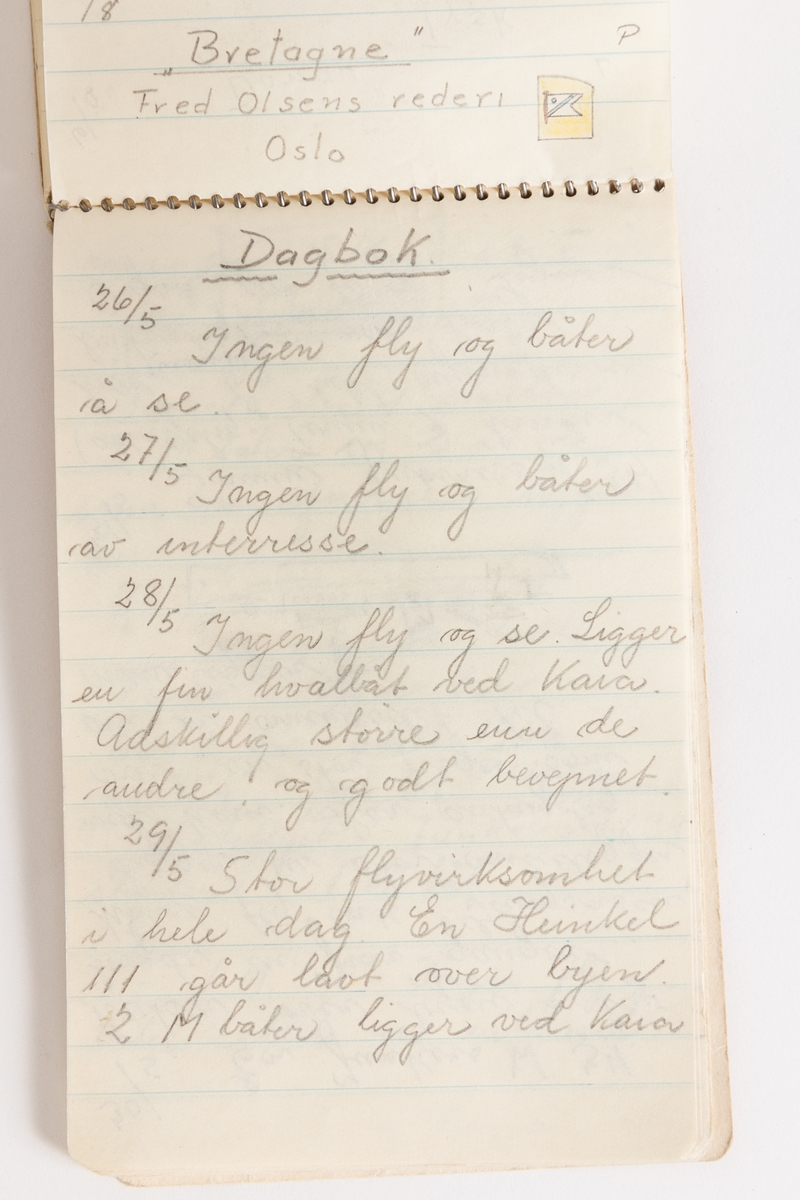 18
„Bretagne" P
Fred Olsens rederi
Oslo
Dagbok.
26/5
Ingen fly og båter
å se.
27/5
Ingen fly og båter
av interresse.
28/5
Ingen fly og se. Ligger
en fin hvalbåt ved Kaia.
Adskillig større enn de
andre, og godt bevepnet.
29/5
Stor flyvirksomhet
i hele dag En Heinkel
111 går lavt over byen.
2 M båter ligger ved Kaia